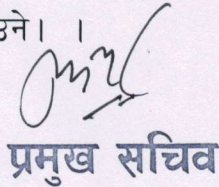 उने । ।
प्रमुख सचिव